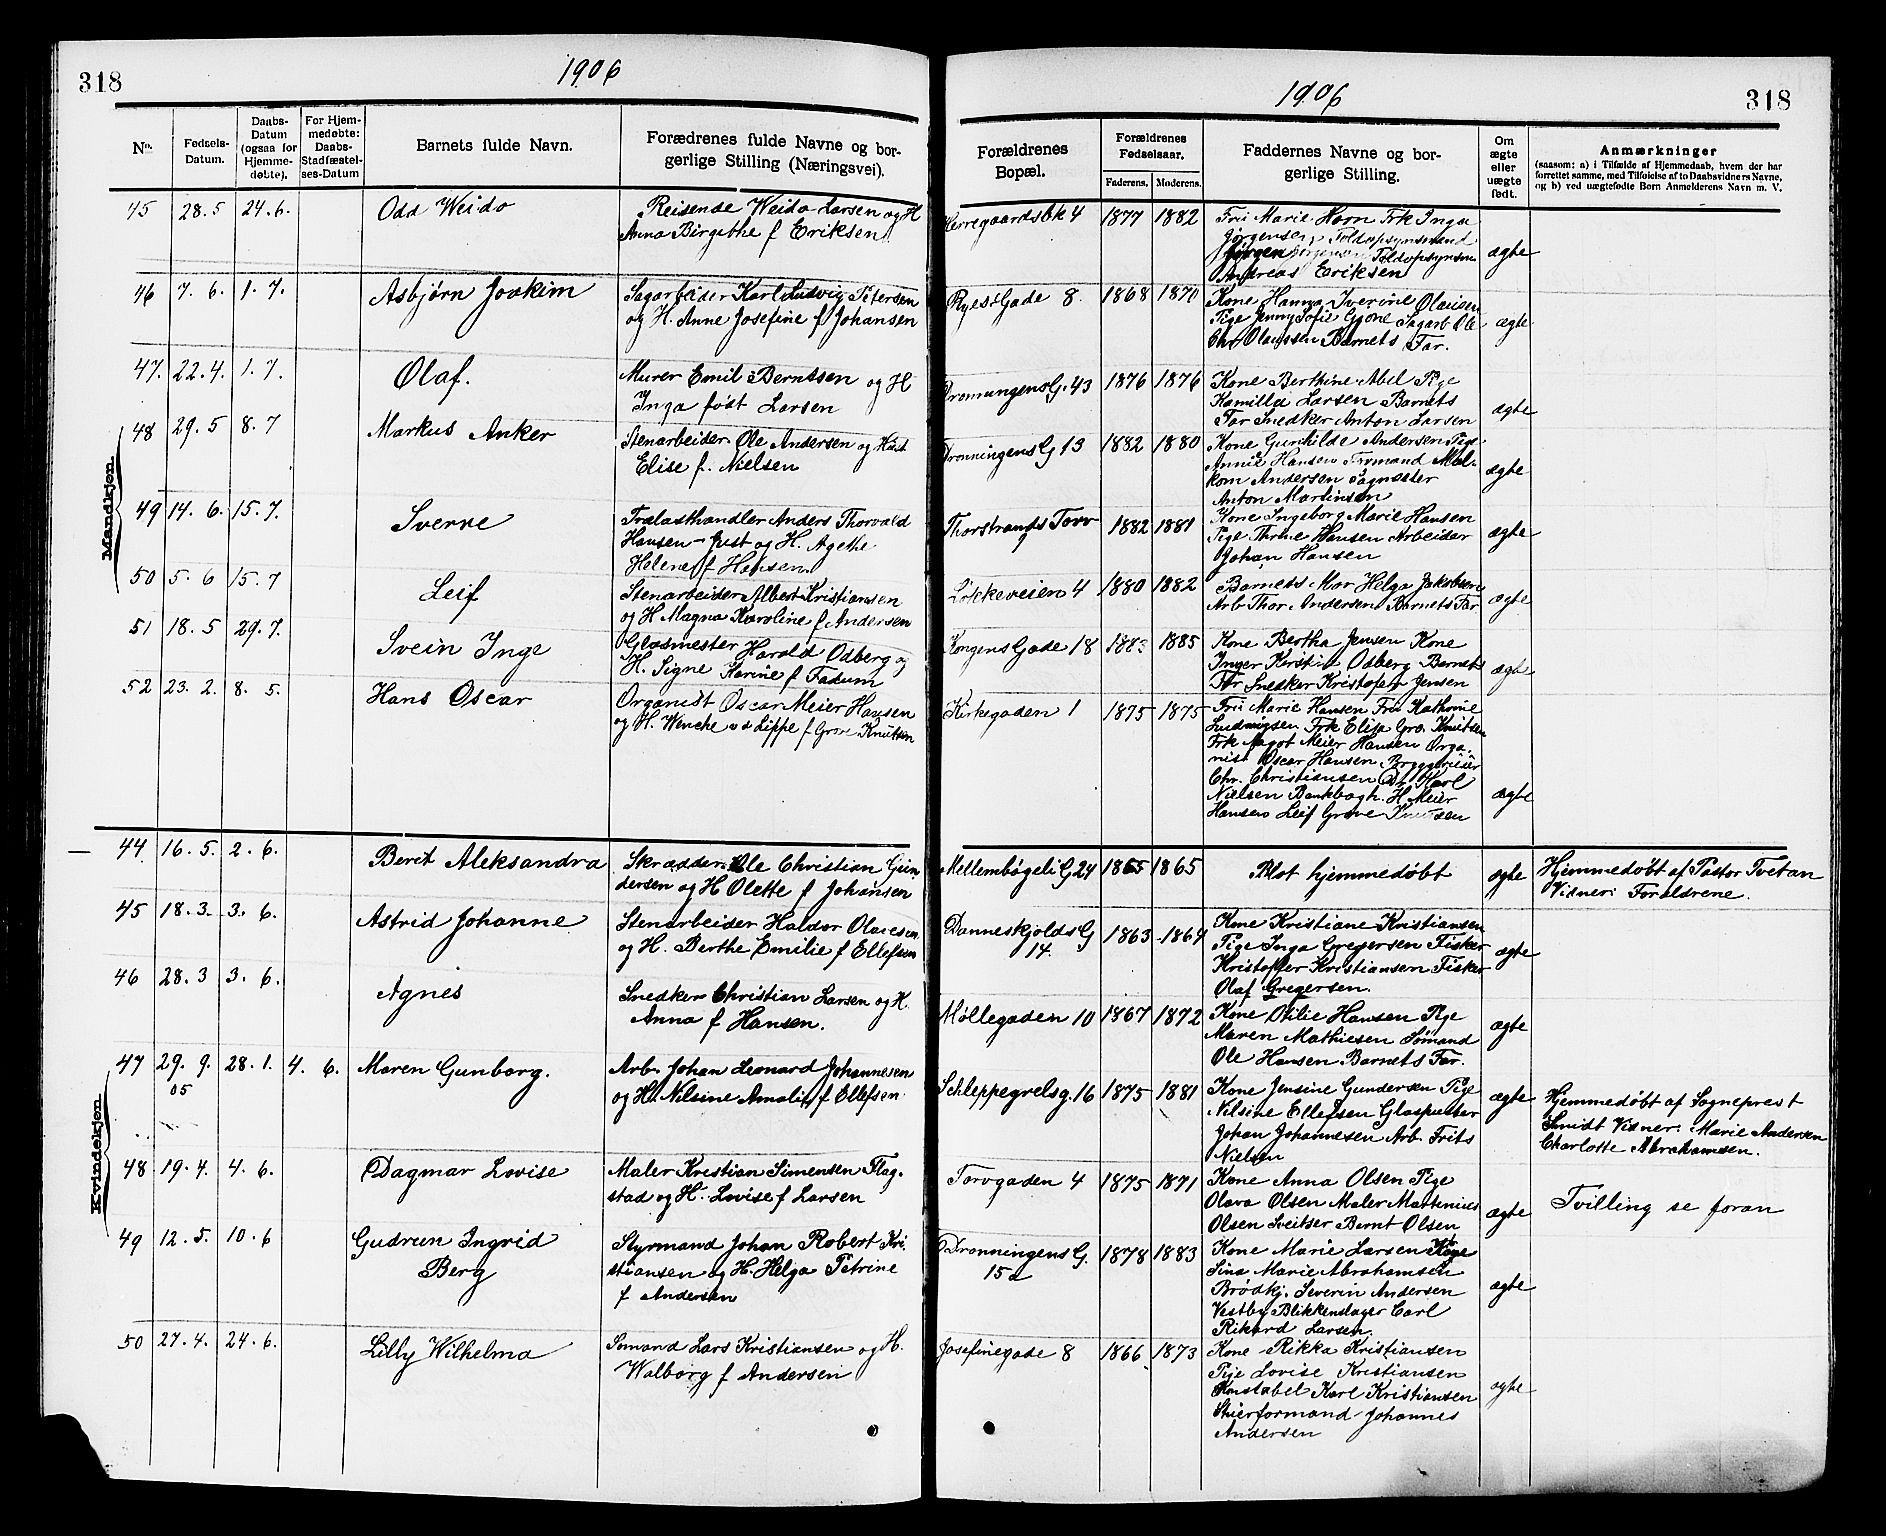 318
1906
No.
Fødsels-
Datum.
Daabs-
Datum
(ogsaa for
Hjemme-
døbte).
For Hjem-
medøbte:
Daabs-
Stadfæstel-
ses-Datum
Barnets fulde Navn.
Forældrenes fulde Navne og bor-
gerlige Stilling (Næringsvei).
Mandkjøn.
45 28.5 24.6. Odd Weido
Reisende Weido Larsen og H
Anna Birgithe f Eriksen
46 7.6. 1.7. Asbjørn Joakim
Sagarbeider Karl Ludvig Petersen
og H. Anne Josefine f Johansen
47. 22.4. 1.7. Olaf.
Murer Emil Berntsen og H
Inga født Larsen
48 29.5 8.7 Markus Anker
Stenarbeider Ole Andersen og Hust
Elise f. Nielsen
49 14.6. 15.7. Sverre
Trælasthandler Anders Thorvald
Hansen-Just og H. Agethe
Helene f Hansen
50 5.6 15.7 Leif
Stenarbeider Albert Kristiansen
og H Magna Karoline f Andersen
51 18.5 29.7. Svein Inge
Glasmester Harald Odberg og
H. Signe Karine f Fadum
52 23.2. 8.5. Hans Oscar
Organist Oscar Meier Hansen
og H. Wenche v d Lippe f Grove Knutsen
Kvindekjøn.
44. 16.5. 2.6. Berit Aleksandra
Skrædder Ole Christian Gun
dersen og H Olette f Johansen
45 18.3. 3.6. Astrid Johanne
Stenarbeider Haldor Olausen
og H. Berthe Emilie f Ellefsen
46 28.3 3.6. Agnes
Snedker Christian Larsen og H.
Anna f Hansen.
47 29.9. 28.1. 4.6. Maren Gunborg.
05
Arb. Johan Leonard Johannesen
og H. Nilsine Amalie f Ellefsen
48 19.4. 4.6. Dagmar Lovise
Maler Kristian Simensen Flag-
stad og H. Lovise f Larsen
49 12.5. 10.6 Gudrun Ingrid
Berg
Styrmand Johan Robert Kri-
stiansen og H. Helga Petrine
f Andersen
50 27.4. 24.6. Lilly Wilhelma
Sømand Lars Kristiansen og H.
Walborg f Andersen
1906
318
Forældrenes
Bopæl.
Forældrenes
Fødselsaar.
Faderens. Moderens.
Faddernes Navne og bor-
gerlige Stilling.
Om
ægte
eller
uægte
født.
Anmærkninger
(saasom: a) i Tilfælde af Hjemmedaab, hvem der har
forrettet samme, med Tilføielse af to Daabsvidners Navne,
og b) ved uægtefødte Børn Anmelderens Navn m. V.
Herregaardsbk 4 1877 1882 Fru Marie Horn Frk Inga
Jørgensen Toldopsynsmand
Jørgen Jørgensen Toldopsynsm
Andreas Eriksen
ægte
Ryes Gade 8. 1868 1870 Kone Hanna Iverine Olausen
Pige Jenny Sofie Gjone Sagarb Ole
Chr. Olaussen Barnets Far.
ægte
Dronningens G. 43 1876 1876 Kone Berthine Abel Pige
Kamilla Larsen Barnets
Far Snedker Anton Larsen
ægte
Dronningens G 13 1882 1880 Kone Gunhilde Andersen Pige
Annie Hansen Formand Mal-
kom Andersen Sagmester
Anton Martinsen
ægte
Thorstrands Torv 1882 1881 Kone Ingeborg Marie Hansen
Pige Thrine Hansen Arbeider
Johan Hansen
ægte
Løkkeveien 4 1880 1882 Barnets Mor Helga Jakobsen
Arb Thor. Andersen Barnets Far
ægte
Kongens Gade 18 1883 1885 Kone Bertha Jensen Kone
Inger Kirstin Odberg Barnets
Far Snedker Kristofer Jensen
ægte
Kirkegaden 1 1875 1875 Fru Marie Hansen Fru Kathrine
Ludvigsen Frk Elisa Gro. Knutsen
Frk Aagot Meier Hansen Orga-
nist Oscar Hansen. Bryggerieier
Chr. Christiansen Dr. Karl
Nielsen Bankbogh. H. Meier
Hansen Leif Grove Knutsen
ægte
Mellembøgeli G 24 1865 1865 Blot hjemmedøbt
ægte
Hjemmedøbt af Pastor Tvetan
Vidner: Forældrene.
Danneskjolds G
14. 1863 1864 Kone Kristiane Kristiansen
Pige Inga Gregersen Fisker
Kristoffer Kristiansen Fisker
Olaf Gregersen.
ægte
Møllegaden 10 1867 1872 Kone Otilie Hansen Pige
Maren Mathiesen Sømand
Ole Hansen Barnets Far.
ægte
Schleppegrelsg. 16 1875 1881 Kone Jensine Gundersen Pige
Nilsine Ellefsen Glaspuster
Johan Johannesen Arb. Frits
Nielsen
ægte
Hjemmedøbt af Sogneprest
Smidt Vidner. Marie Andersen
Charlotte Abrahamsen.
Torvgaden 4 1875 1871 Kone Anna Olsen Pige
Olava Olsen Maler Martenius
Olsen Sveitser Bernt Olsen
ægte
Tvilling se foran
Dronningens G.
15a 1878 1883 Kone Marie Larsen Pige
Sina Marie Abrahamsen
Brødkj. Severin Andersen
Vestby Blikkenslager Carl
Rikard Larsen.
ægte
Josefinegade 8 1866 1873 Kone Rikka Kristiansen
Pige Lovise Kristiansen
Konstabel Karl Kristiansen
Stuerformand Johannes
Andersen
ægte